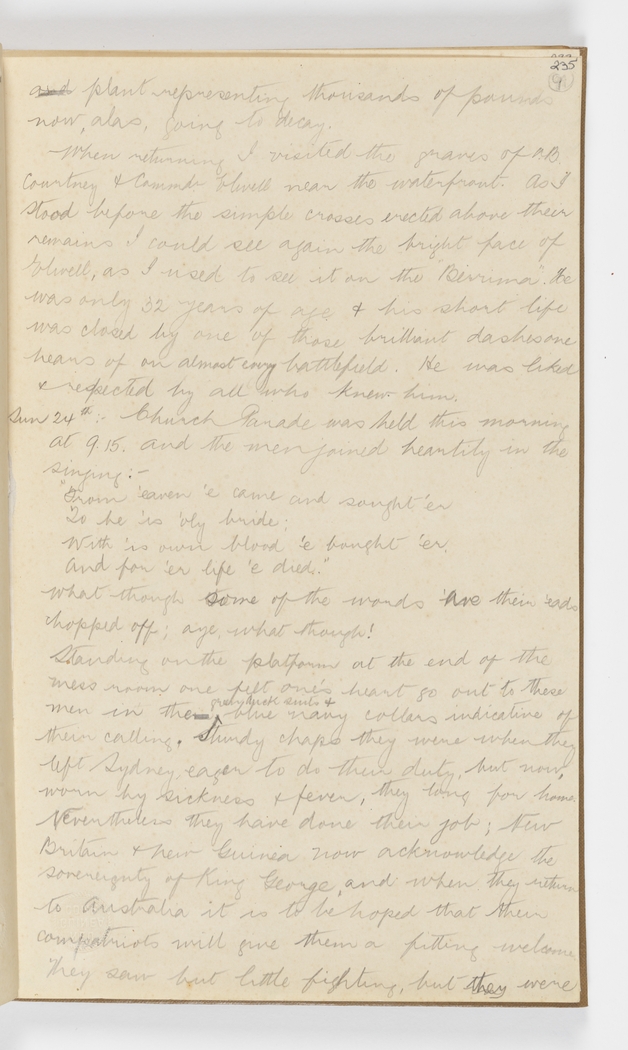 235
and plant representing thousands of pounds
now, alas, going to decay.
When returning I visited the graves of A.B.
Courtney & Commdr Elwell near the waterfront. As I
stood before the simple crosses erected above their
remains I could see again the bright face of
Elwell, as I used to see it on the "Berrima". He
was only 32 years of age & his short life
was closed by one of those brilliant dashes one
hears of on almost every battlefield. He was liked
& respected by all who knew him.
Sun 24th:- Church Parade was held this morning
at 9.15. and the men joined heartily in the
singing:-
"From 'eaven 'e came and sought 'er
To be 'is 'oly bride;
With 'is own blood 'e bought 'er,
And for 'er life 'e died."
what though some of the words 'ave their 'eads
chopped off; aye, what though!
Standing on the platform at the end of the
mess room one felt one's heart go out to these
grey suits &
men in the blue navy collars indicative of
their calling. Sturdy chaps they were when they
left Sydney, eager to do their duty, but now,
worn by sickness & fever, they long for home
Nevertheless they have done their job; New
Britain & New Guinea now acknowledge the
sovereignty of King George, and when they return
to Australia it is to be hoped that their
compatriots will give them a fitting welcome
They saw but little fighting, but they were